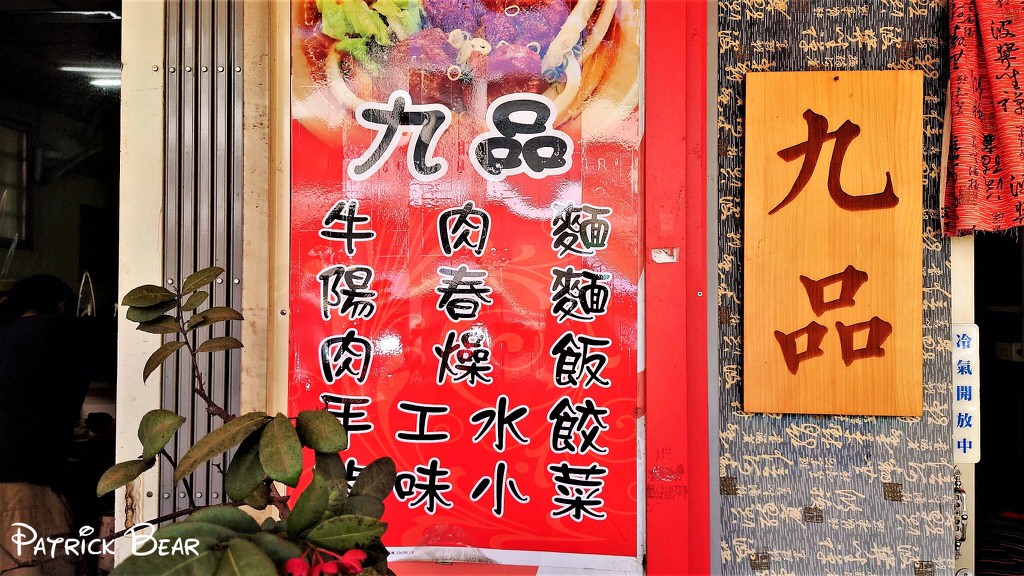 九品
牛肉麵
陽春麵
肉燥飯
手工水餃
味小菜
九品
冷氣開放中
Patrick Bear